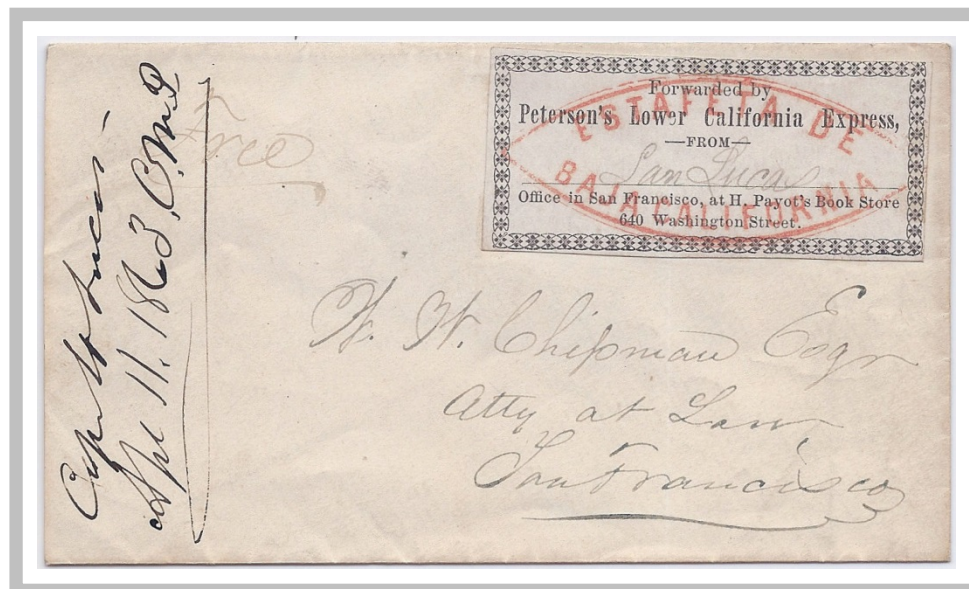 Cape St Lucas
Apl 11. 1863,
Free
Forwarded by
Peterson's Lower California Express,
—FROM—
San Lucas
Office in San Francisco, at H. Payot's Book Store
640 Washington Street.
ESTAFETA DE
BAJA CALIFORNIA
W. W. Chipman Esqr
Atty at Law
San Francisco